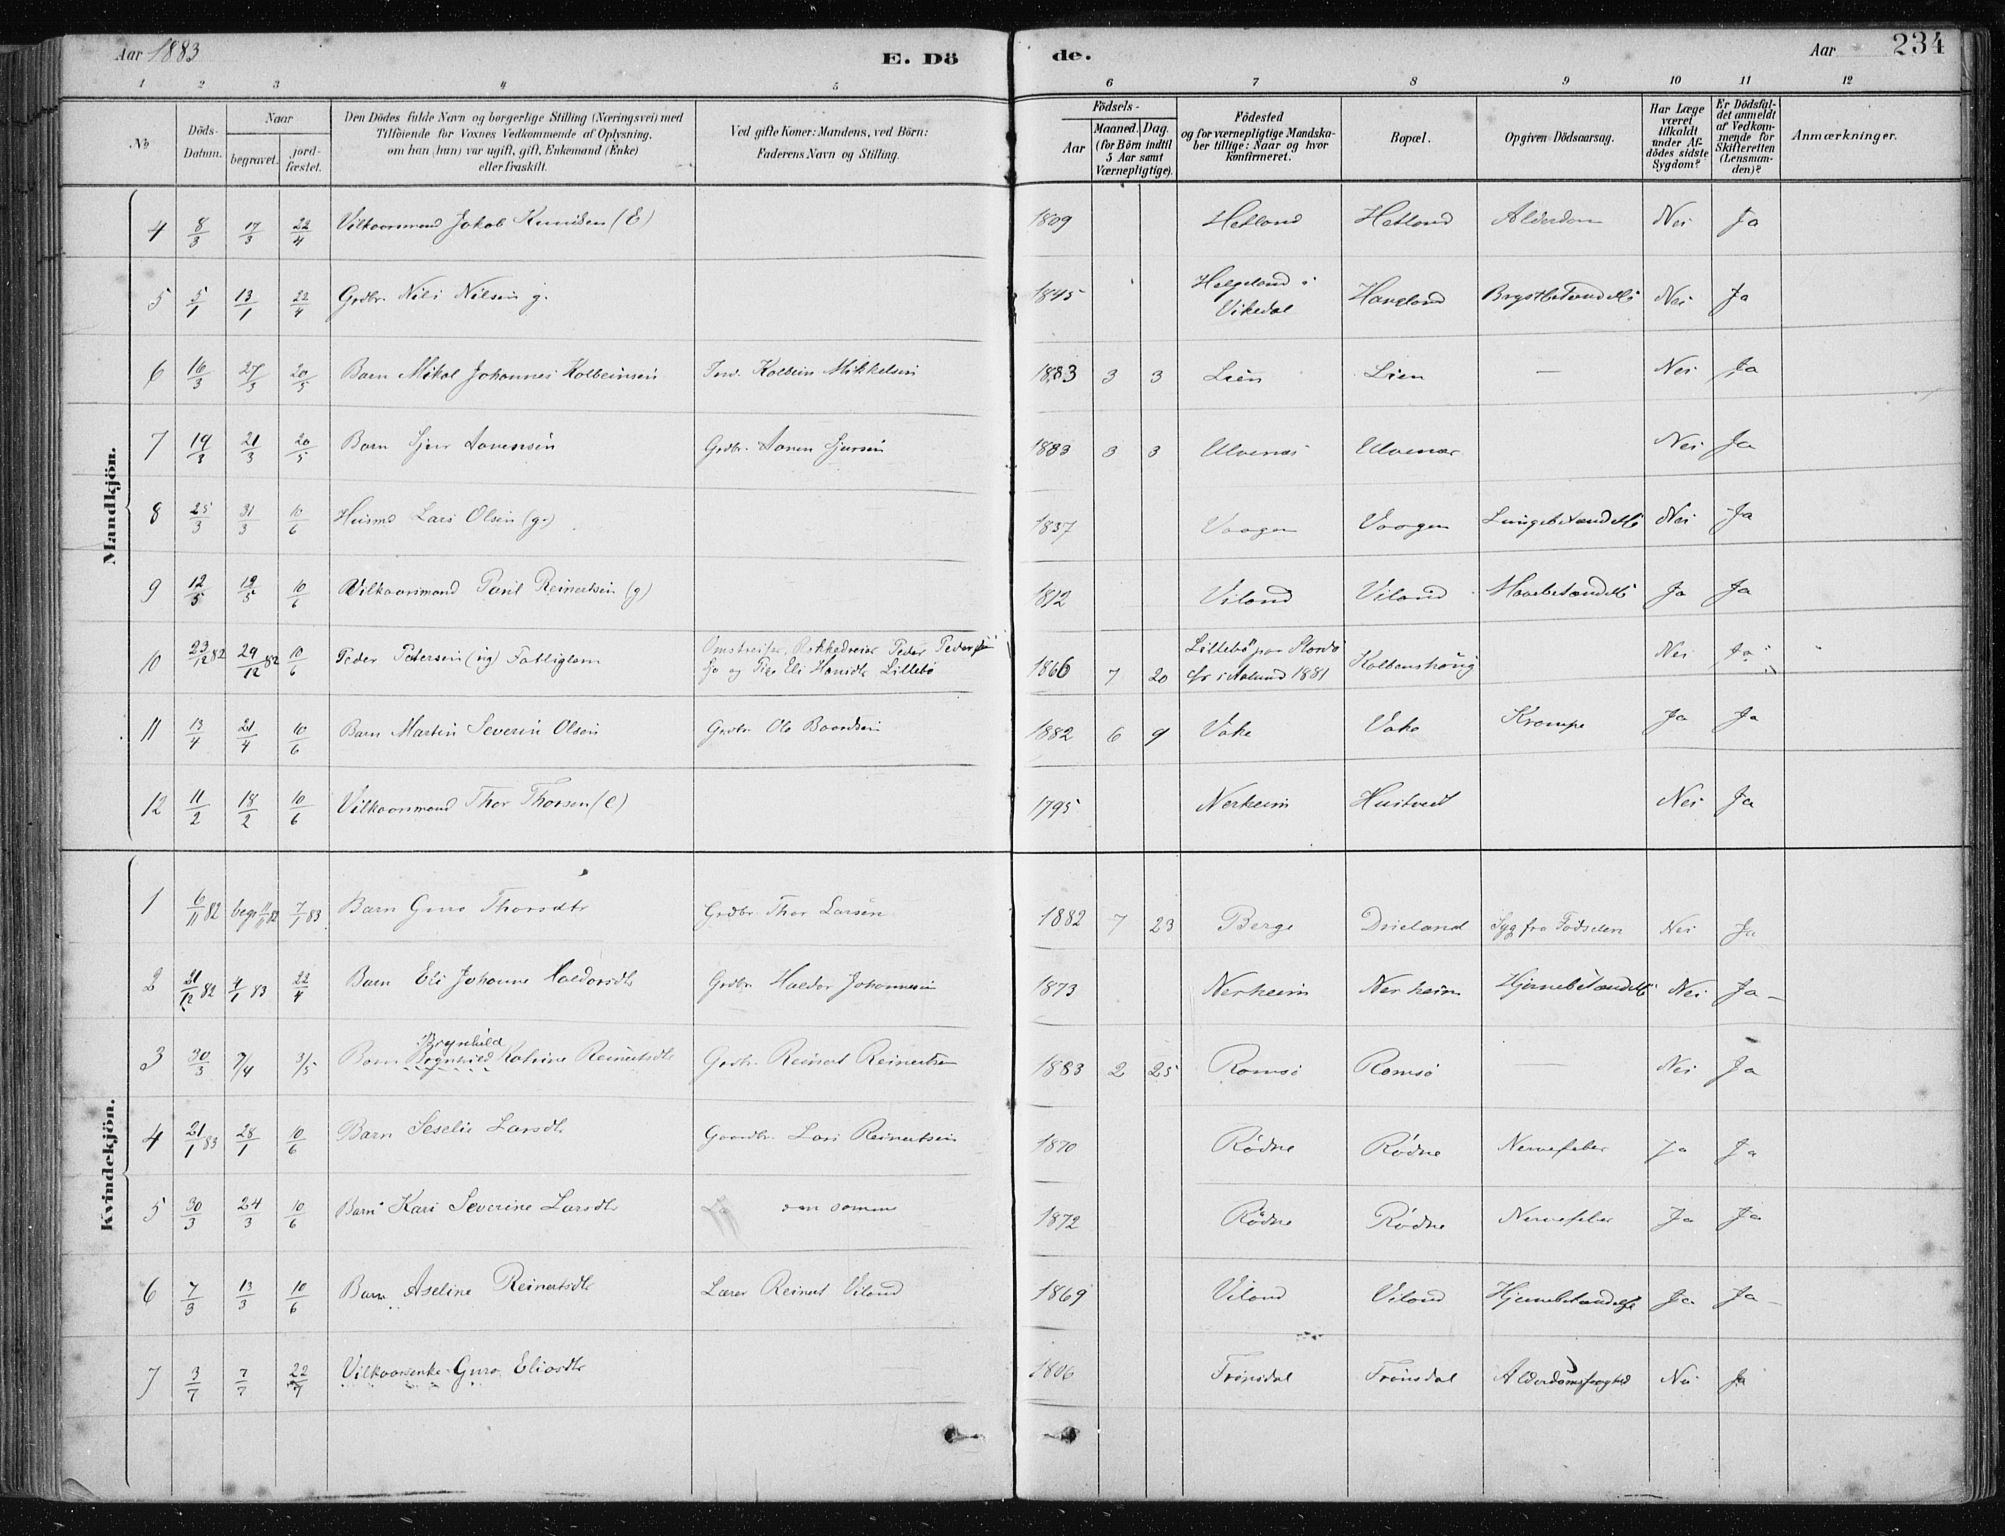 Aar 1883 E. Dö de. Aar 234
1 2 3 4 5 6 7 8 9 10 11 12
No
Döds-Datum.
Naar
begravet. jord-fæstet.
Den Dödes fulde Navn og borgerlige Stilling (Næringsvei) med
Tilföiende for Voxnes Vedkommende af Oplysning,
om han (hun) var ugift, gift, Enkemand (Enke)
eller fraskilt.
Ved gifte Koner: Mandens, ved Börn:
Faderens Navn og Stilling.
Födsels-
Aar
Maaned. Dag.
(for Börn indtil
5 Aar samt
Værnepligtige).
Födested
og for værnepligtige Mandska-
ber tillige: Naar og hvor
konfirmeret.
Bopæl.
Opgiven Dödsaarsag.
Har Læge
været
tilkaldt
under Af-
dödes sidste
Sygdom?
Er Dödsfal-
det anmeldt
af Vedkom-
mende for
Skifteretten
(Lensman-
den)?
Anmærkninger.
Mandkjön.
4 8/3 17/3 22/4 Vilkaarsmand Jakob Knudsen (E) 1809 Hetland Hetland Alderdom Nei Ja
5 5/1 13/1 22/4 Grdbr. Nils Nilsen g. 1845 Helgeland i Vikedal Haveland Brystbetændelse Nei Ja
6 16/3 27/3 20/5 Barn Mikal Johannes Kolbeinsen Ind. Kolbein Mikkelsen 1883 3 3 Lien Lien — Nei Ja
7 19/3 21/3 20/5 Barn Sjur Aanensen Grdbr. Aanen Sjursen 1883 3 3 Ulvenæs Ulvenæs Nei Ja
8 25/3 31/3 10/6 Husmd Lars Olsen (g.) 1837 Vaagen Vaagen Lungebetændelse Nei Ja
9 12/5 19/5 10/6 Vilkaarsmand Poul Reinertsen (g) 1812 Viland Viland Mavebetændelse Ja Ja
10 23/12 82 29/12 82 10/6 Peder Petersen (ug) Fattiglem Omstreifer, Rokkedreier Peder Pedersen og Eli Hansdtr Lillebö 1866 7 20 Lillebö paa Stordö cfr i Aalund 1881 Kolbenshaug Nei Ja
11 13/4 21/4 10/6 Barn Martin Severin Olsen Grdbr Ole Baardsen 1882 6 9 Vake Vake Krampe Ja Ja
12 11/2 18/2 10/6 Vilkaarsmand Thor Thorsen (e) 1795 Nerheim Hustvedt Nei Ja
Kvindekjön.
1 6/11 82 begr 11/11 82 7/1 83 Barn Guro Thorsdtr Grdbr. Thor Larsen 1882 7 23 Berge Drieland Syg fra Födselen Nei Ja
2 21/12 82 4/1 83 22/4 Barn Eli Johanne Haldorsdtr Grdbr Haldor Johannesen 1873 Nerheim Nerheim Hjernebetændelse Nei Ja
3 30/3 7/4 3/5 Barn Brynhild Ragnhild Katrine Reinertsdtr Grdbr. Reinert Reinertsen 1883 2 25 Romsö Romsö — Nei Ja
4 21/1 83 28/1 10/6 Barn Seselie Larsdtr Gaardbr. Lars Reinertsen 1870 Rödne Rödne Nervefeber Ja Ja
5 30/3 24/3 10/6 Barn Kari Severine Larsdtr den samme 1872 Rödne Rödne Nervefeber Ja Ja
6 7/3 13/3 10/6 Barn Aseline Reinertsdtr Lærer Reinert Viland 1869 Viland Viland Hjernebetændelse Ja Ja
7 3/7 7/7 22/7 Vilkaarsenke Guro Eliasdtr 1806 Frönsdal Frönsdal Alderdomssvaghed Nei Ja